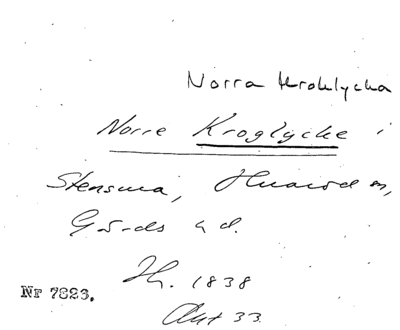 Norra Kroklycka
Norre Kroglycke i
Stensma, Hvaröd m,
Gärds hd.
Jb. 1838
Akt 33.
Nr 7823.